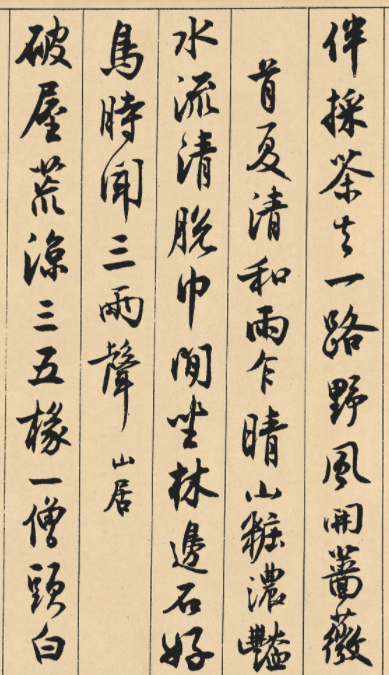 伴採茶去一路野風開薔薇
首夏清和雨乍晴山粧濃豔
水流清脫巾閒坐林邊石好
鳥時聞三兩聲 山居
破屋荒涼三五椽一僧頭白